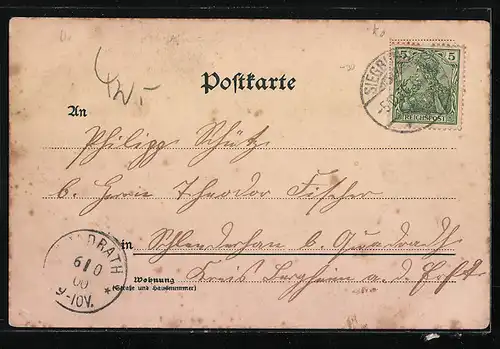 4W.-
Postkarte
SIEGB
5 5
REICHSPOST
An
Philipp Schütz
b. Herrn Theodor Fischer
in Schlenderhan b. Quadrath
Wohnung
(Straße und Hausnummer)
Kreis Bergheim a. d. Erft
DRATH
6/10
00
9-10V.